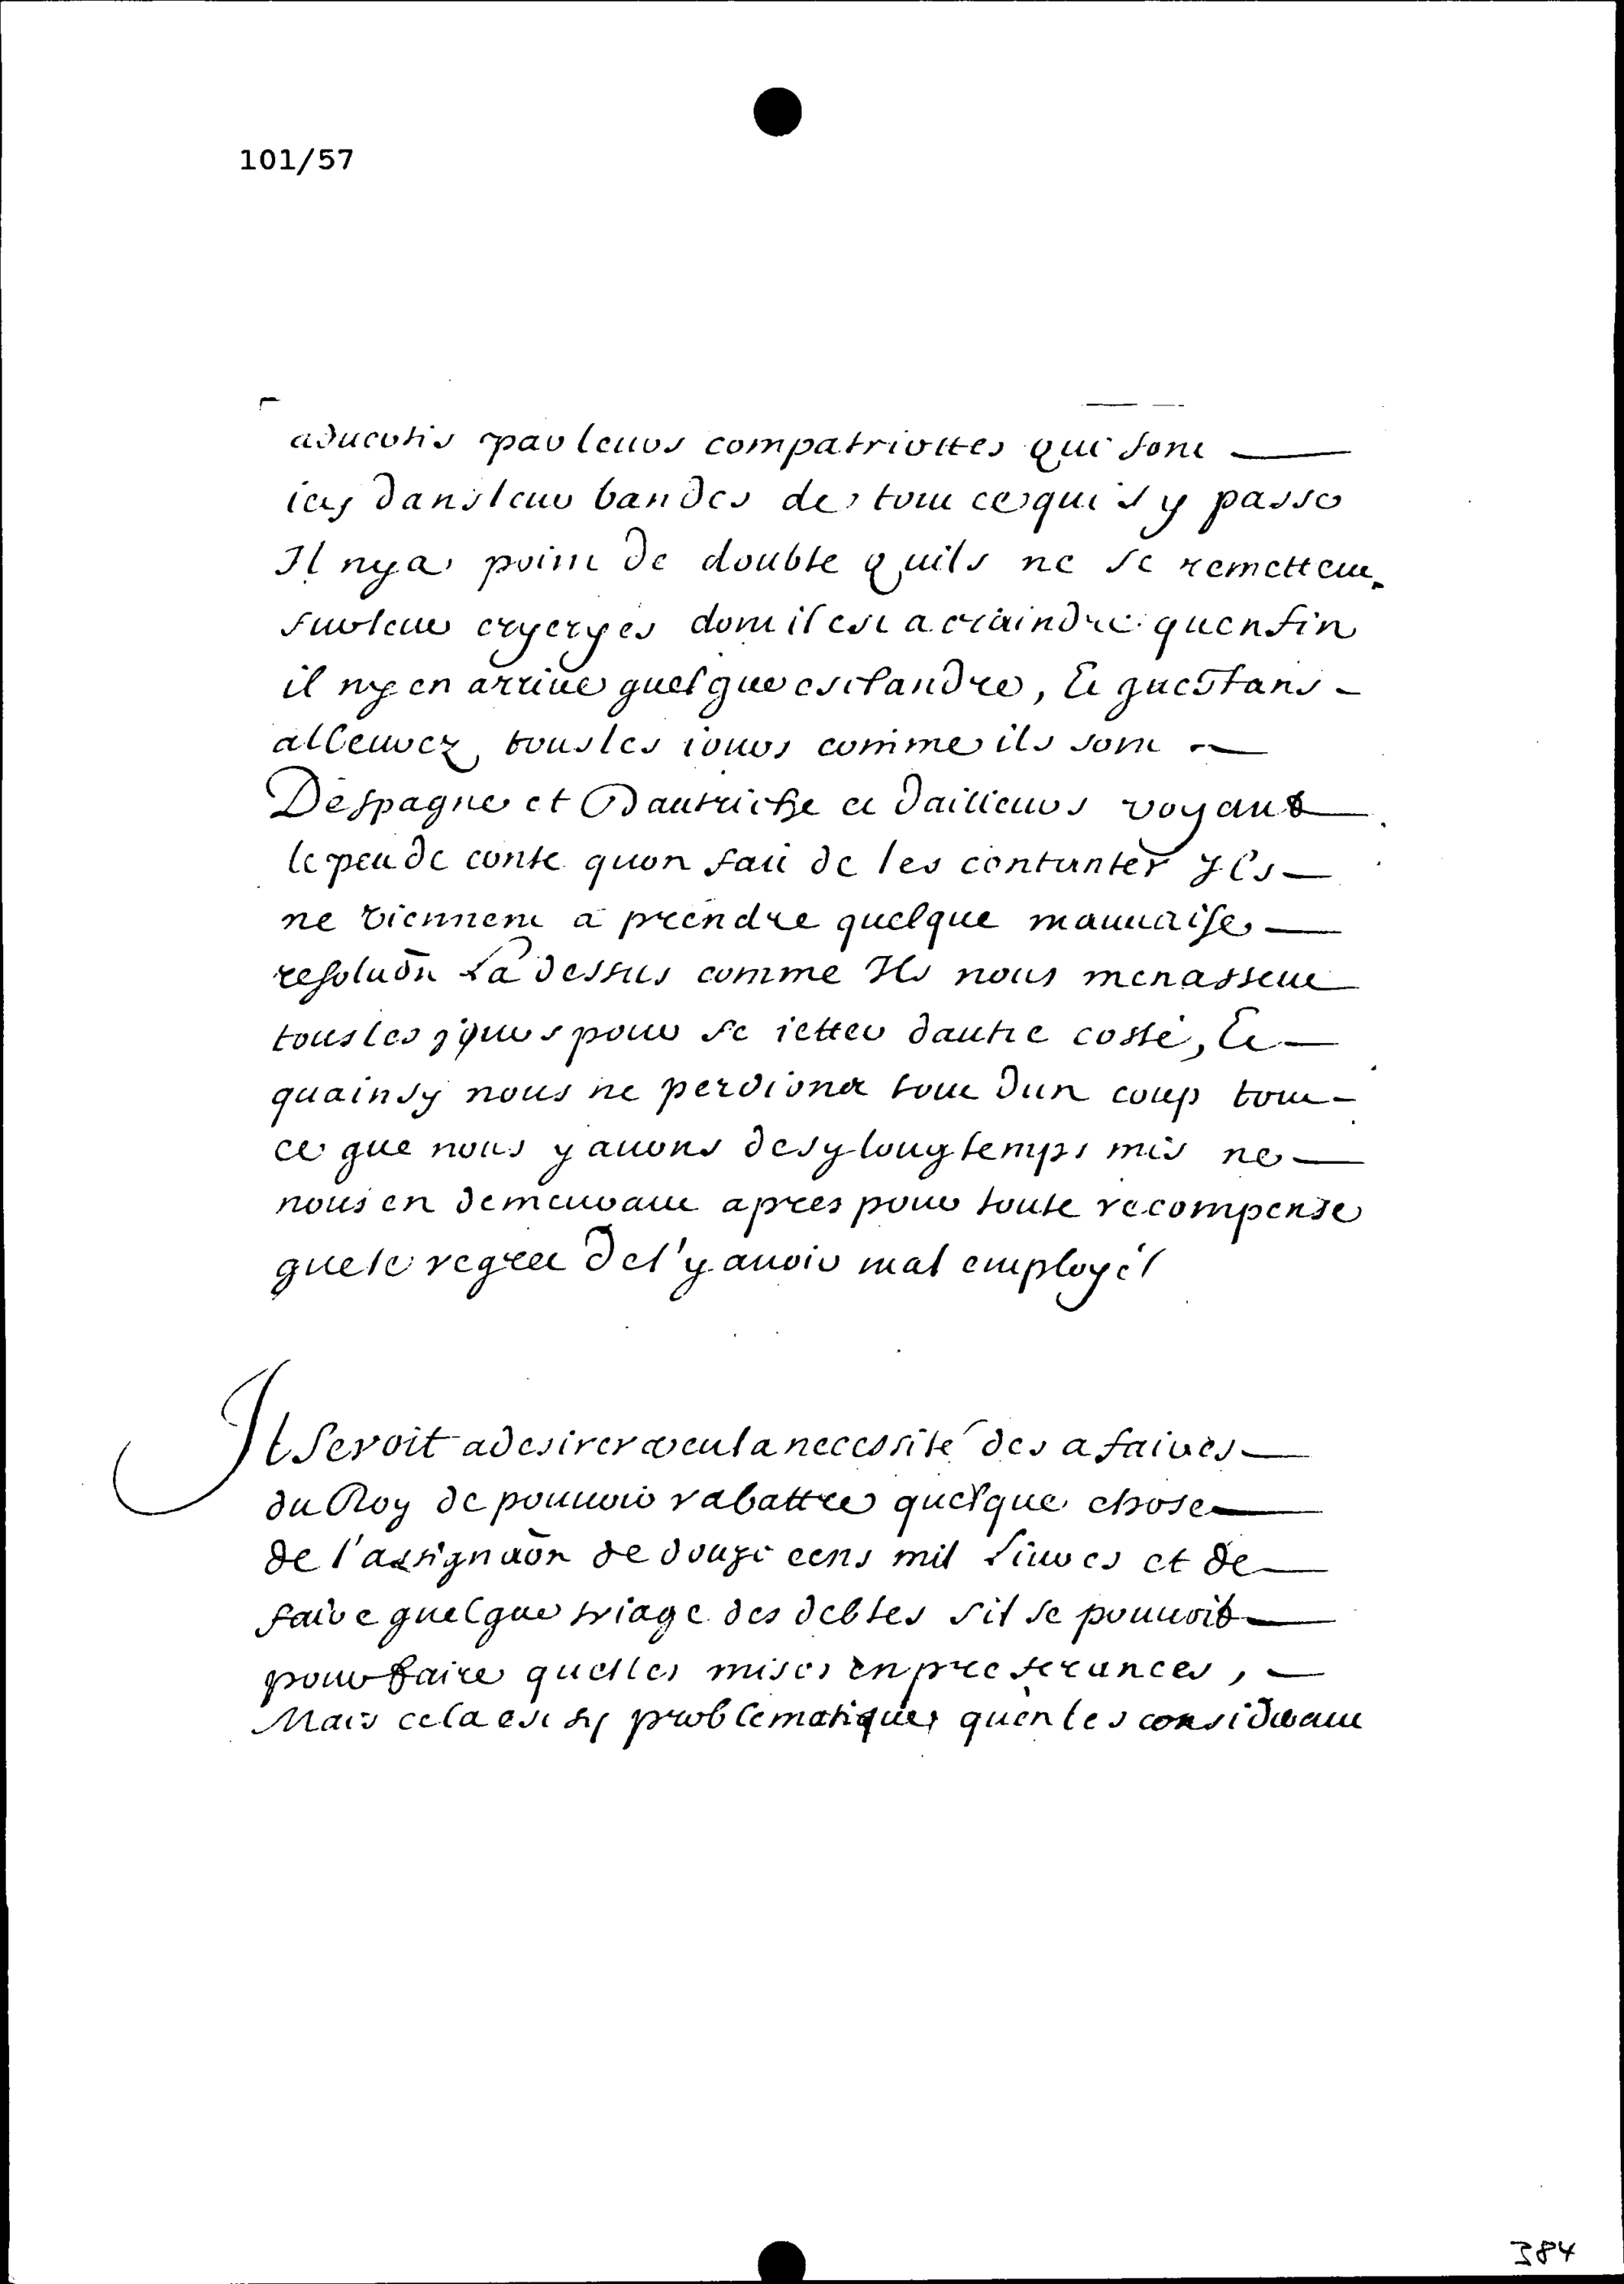 101/57
aduertis par leurs compatriottes qui sont
icy dans leur bandes de tout ce qui s y passe
Il nya point de doubte quils ne se remettent
sur leur cryeryes dont il est a craindre quenfin
il ny en arriue quelque esclandre, Et questans
alleurez tous les iours comme ils sont
Despagne et Dautriche et dailleurs voyant
le peu de conte quon fait de les contanter Ils
ne viennent a prendre quelque mauuaise
resoluõn La dessus comme Ils nous menassent
tous les jours pour se ietter dautre costé, Et
quainsy nous ne perdions tout dun coup tout
ce que nous y auons desy longtemps mis ne
nous en demeurant apres pour toute recompense
que le regret de l'y auoir mal employé
Il seroit a desirer veu la necessité des afaires
du Roy de pouuoir rabattre quelque chose
de l'assignaõn de douze cens mil Liures et de
faire quelque triage des debtes sil se pouuoit
pour faire quelles mises en preferances,
Mais cela est sy problematique quen les considerant
384